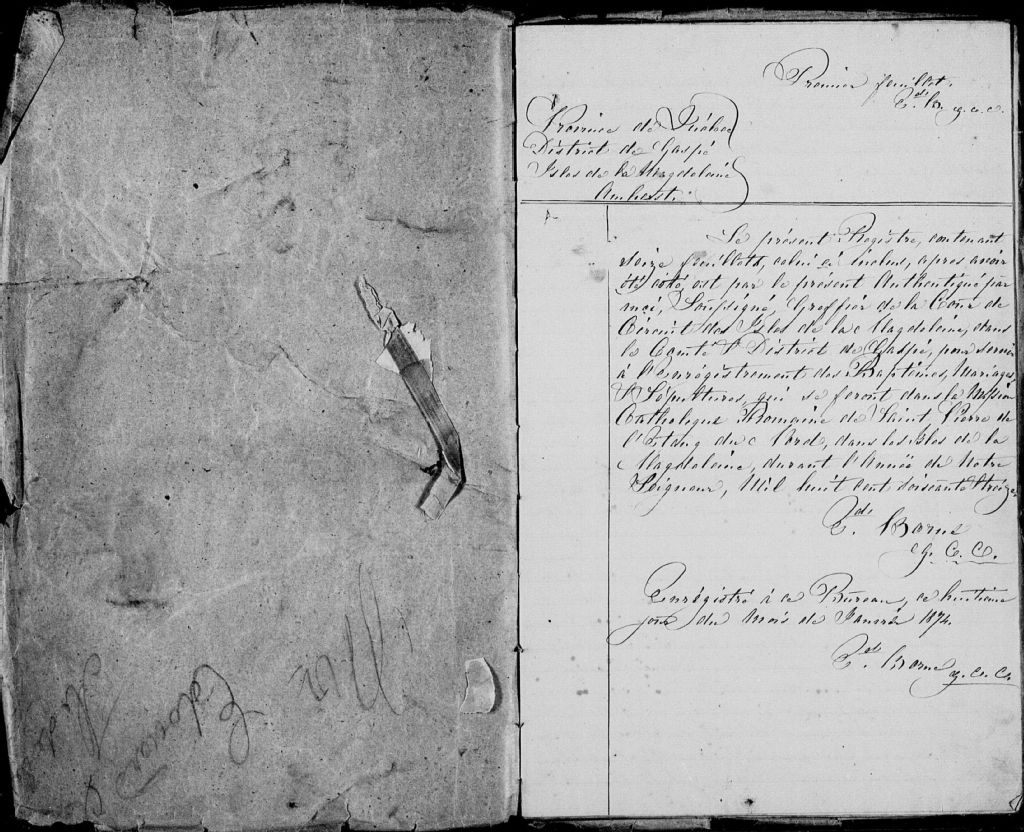 Premier feuillet.
Ed. B. g.c.c.
Province de Québec
District de Gaspé
Isles de la Magdeleine
Amherst.
Le présent Registre, contenant
seize feuillets, celui ci inclus, apres avoir
été coté, est par le présent Authentiqué par
moi, Soussigné, Greffier de la Cour de
Circuit des Isles de la Magdeleine, dans
le Comté & District de Gaspé, pour servir
à l'Enrégistrement des Baptêmes, Mariages,
& Sépultures, qui se feront dans la Mission
Catholique Romaine de Saint Pierre de
l'Etang du Nord, dans les Isles de la
Magdeleine, durant l'Année de Notre
Seigneur, Mil huit cent soixante & treize
Ed. Borne
G. C. C.
Enrégistré à ce Bureau, ce huitième
jour du Mois de Janvier 1874.
Ed. Borne g.c.c.